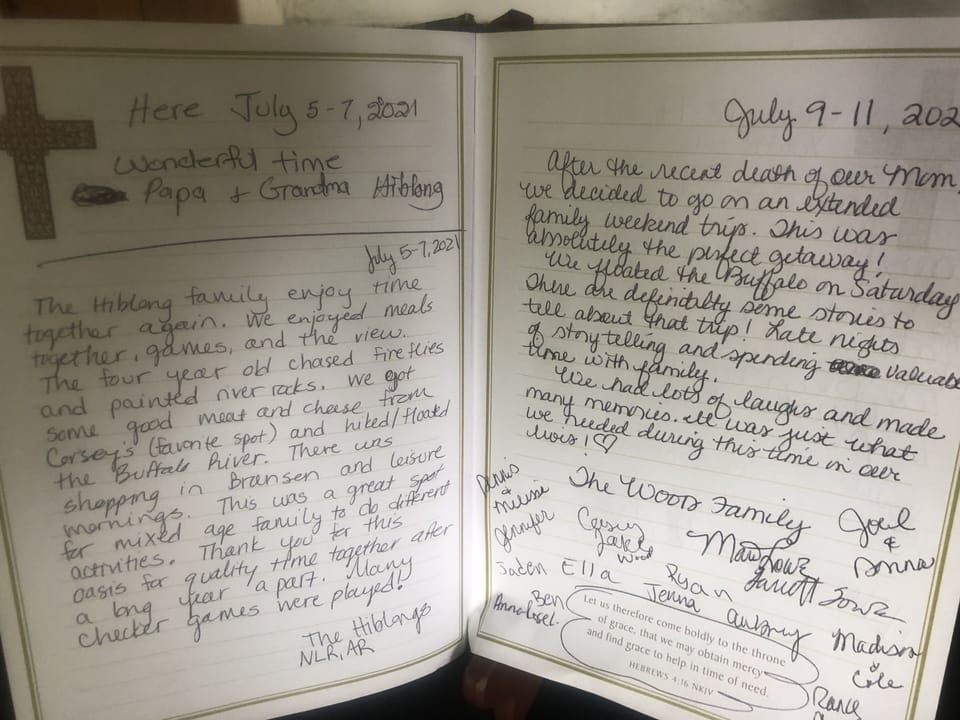 Here July 5-7, 2021
Wonderful time
Papa + Grandma Hiblong
July 5-7, 2021
The Hiblong family enjoy time
together again. We enjoyed meals
together, games, and the view.
The four year old chased fireflies
and painted river rocks. We got
some good meat and cheese from
Corsey's (favorite spot) and hiked/floated
the Buffalo River. There was
shopping in Bransen and leisure
mornings. This was a great spot
for mixed age family to do different
activities. Thank you for this
oasis for quality time together after
a long year a part. Many
checker games were played!
The Hiblongs
NLR, AR
July 9-11, 202
After the recent death of our Mom,
we decided to go on an extended
family weekend trips. This was
absolutely the perfect getaway!
We floated the Buffalo on Saturday
There are definitely some stories to
tell about that trip! Late nights
of story telling and spending valuable
time with family.
We had lots of laughs and made
many memories. It was just what
we needed during this time in our
lives! ♡
The Woods Family
Joel
&
Donna
Dennis
&
Melissa
Jennifer
Casey
Jake
Jaden
Ella
Ryan
Jenna
Aubrey
Madison
&
Cole
Ben
Annabel
Rance
Let us therefore come boldly to the throne
of grace, that we may obtain mercy
and find grace to help in time of need.
HEBREWS 4:16 NKJV